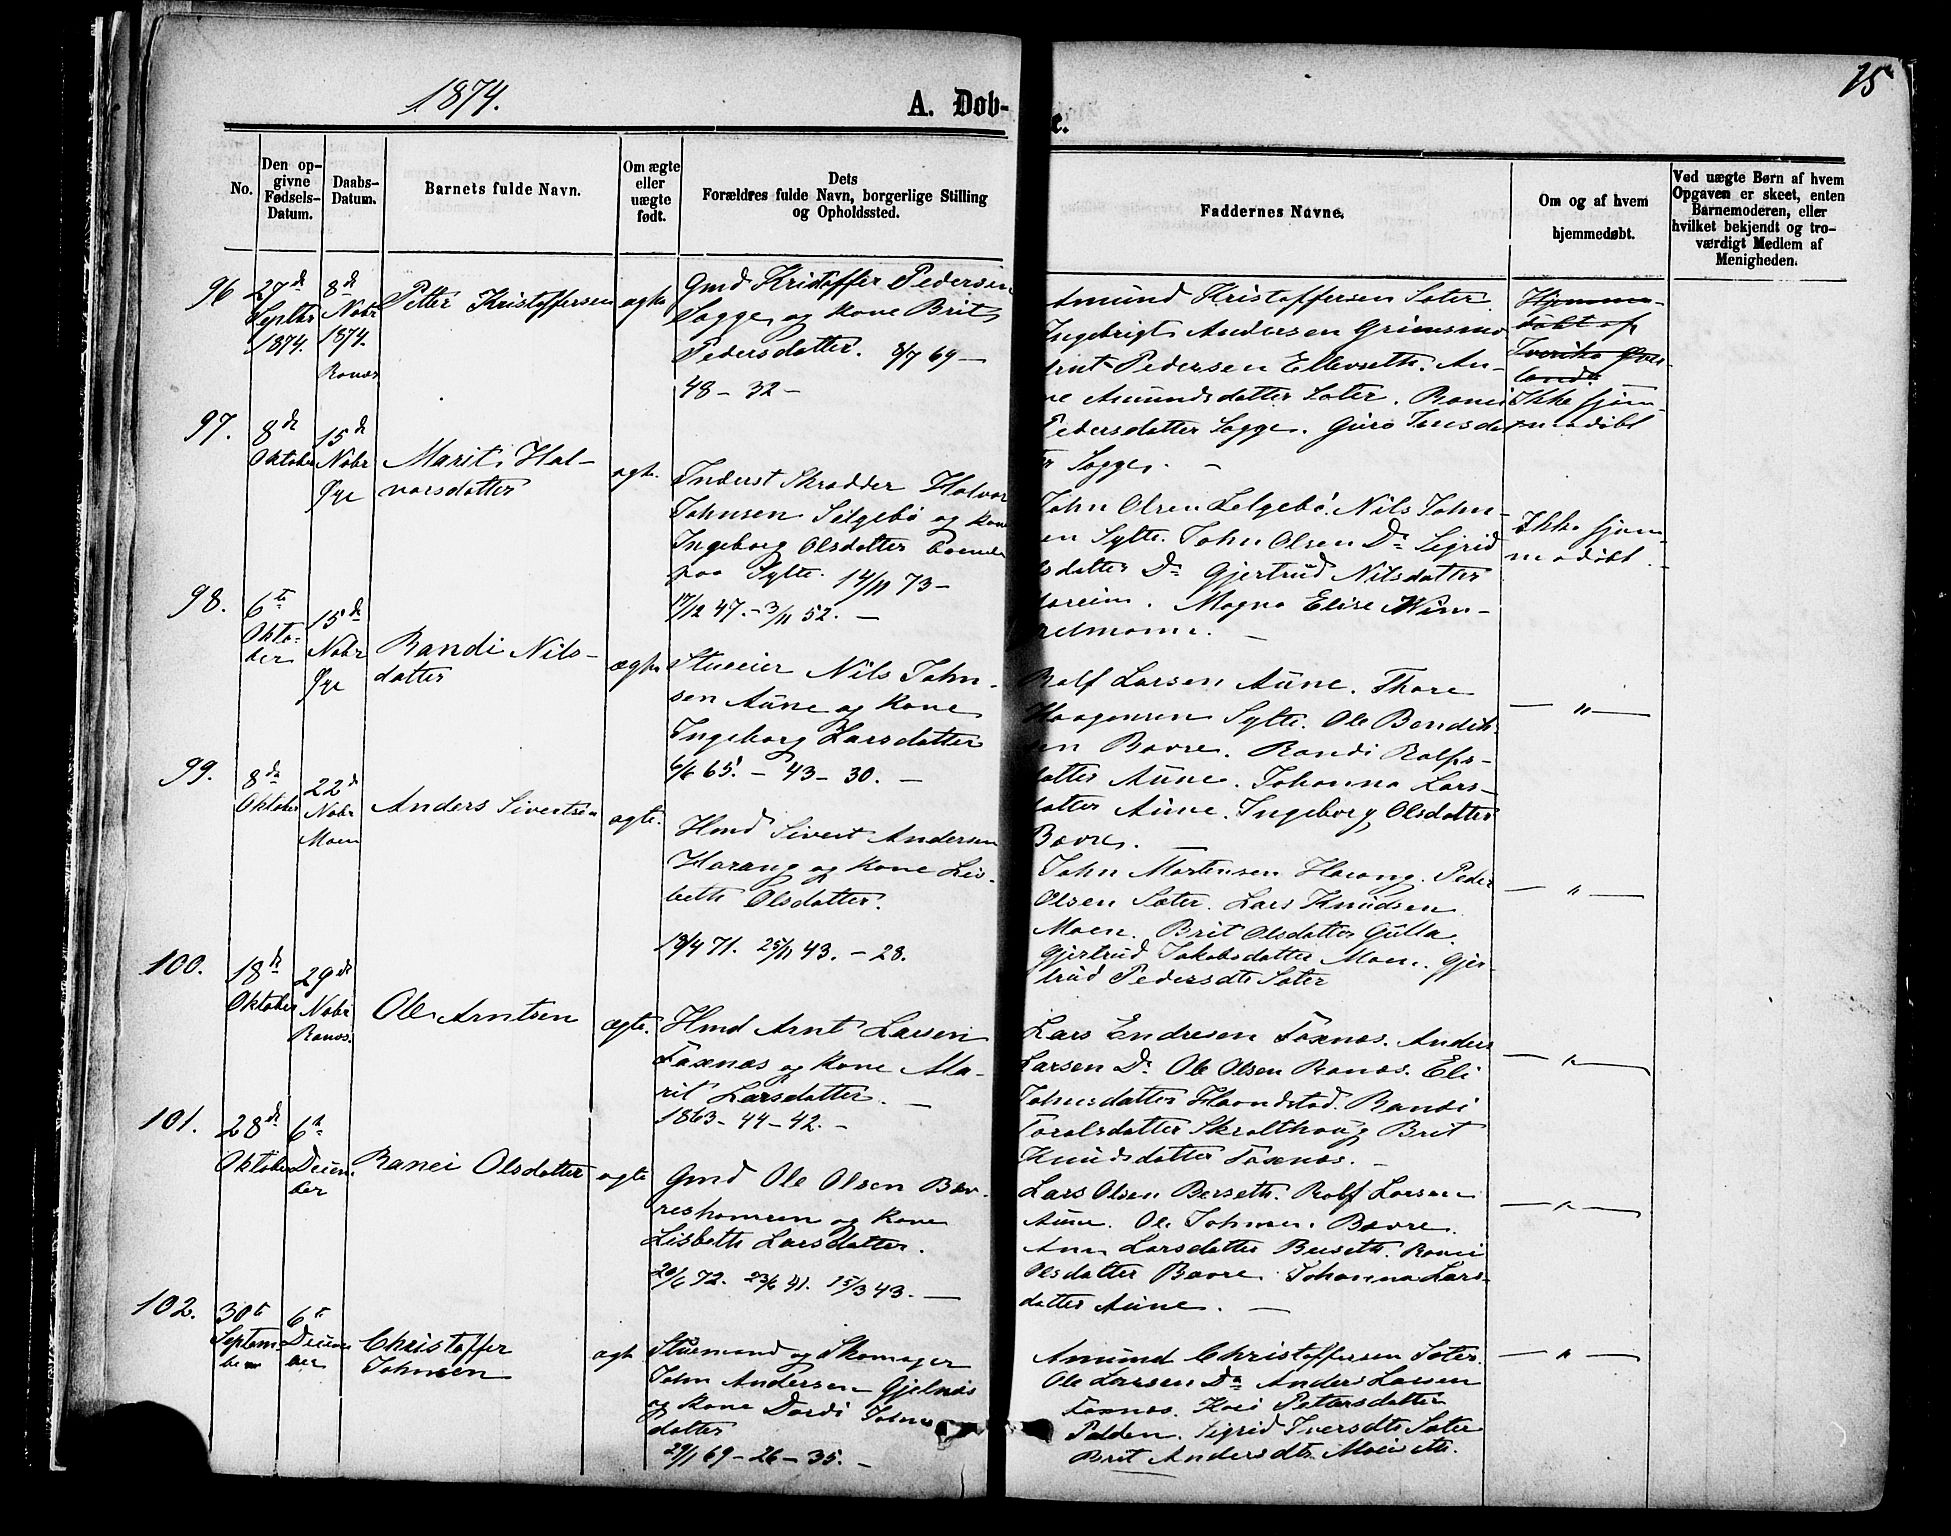 1874.
A. Døb-
e.
15
No.
Den op-
givne
Fødsels-
Datum.
Daabs-
Datum.
Barnets fulde Navn.
Om ægte
eller
uægte
født.
Dets
Forældres fulde Navn, borgerlige Stilling
og Opholdssted.
Faddernes Navne.
Om og af hvem
hjemmedøbt.
Ved uægte Børn af hvem
Opgaven er skeet, enten
Barnemoderen, eller
hvilket bekjendt og tro-
værdigt Medlem af
Menigheden.
96
27de
Septbr
1874.
8de
Nobr
1874.
Ranæs
Petter Kristoffersen
ægte
Gmd Kristoffer Pedersen
Sogge og Kone Brit
Pedersdatter. 8/7 69 —
48 — 32 —
Amund Kristoffersen Sæter
Ingebrigt Andersen Grimsmo
Pedersen Ellevseth. An-
ne Amundsdatter Sæter. Ranei
Pedersdatter Sogge. Guro Jonsdat
ter Sogge. —
Hjemme-
døbt af
Ikke hjem-
medøbt
97.
8de
Oktober
15de
Nobr
Øye
Marit Hal-
vorsdatter
ægte.
Inderst Skrædder Halvor
Johnsen Sælgebø og Kone
Ingeborg Olsdatter boende
paa Sylte. 14/11 73 —
17/12 47. — 3/11 52. —
John Olsen Sælgebø. Nils John-
sen Sylte. John Olsen Do Sigrid
datter Do Gjertrud Nilsdatter
Magna Elise Wim-
melmann. —
Ikke hjem
medøbt.
98.
6te
Okto-
ber
15de
Nobr
Øye
Randi Nils-
datter
ægte
Stueeier Nils John-
sen Aune og Kone
Ingeborg Larsdatter
6/6 65. — 43 — 30. —
Rolf Larsen Aune. Thore
Haagensen Sylte. Ole Bendik-
sen Bævre. Randi Rolfs-
datter Aune. Johanna Lars-
datter Aune. Ingeborg Olsdatter
Bævre.
— " —
99.
8de
Oktober
22de
Nobr
Moen
Anders Sivertsen
ægte.
Hmd Sivert Andersen
Harang og Kone Lis-
beth Olsdatter.
13/4 71. 25/11 43. — 28.
John Mortensen Harang. Peder
Olsen Sæter. Lars Knudsen
Moen. Brit Olsdatter Gulla.
Gjertrud Jakobsdatter Moen. Gjer-
trud Pedersdtr Sæter
— " —
100.
18de
Oktober
29de
Nobr
Ranæs.
Ole Arntsen
ægte.
Hmd Arnt Larsen
Toxnæs og Kone Ma-
rit Larsdatter. —
1863 — 44 — 42. —
Lars Endresen Toxnæs. Anders
Larsen Do Ole Olsen Ranæs. Eli
Johnsdatter Haandstad. Randi
Toralsdatter Skralthaug Brit
Knudsdatter Toxnæs. —
— " —
101.
28de
Oktober
6te
Decem-
ber
Ranei Olsdatter
ægte
Gmd Ole Olsen Bæv-
reshamren og Kone
Lisbeth Larsdatter.
20/6 72. 23/6 41. 15/3 43. —
Lars Olsen Berseth. Rolf Larsen
Aune. Ole Johnsen Bævre.
Ann Larsdatter Berseth. Ranei
Olsdatter Bævre. Johanna Lars-
datter Aune. —
— " —
102.
30te
Septem
ber
6te
Decem
ber
Christoffer
Johnsen
ægte
Stuemand og Skomager
John Andersen Gjelnæs
og Kone Dordi Johns
datter
29/1 69 — 26 — 35. —
Amund Christoffersen Sæter.
Ole Larsen Do Anders Larsen
Toxnæs. Pettersdatter
Polden. Sigrid Iversdtr Sæter
Brit Andersdtr
— " —